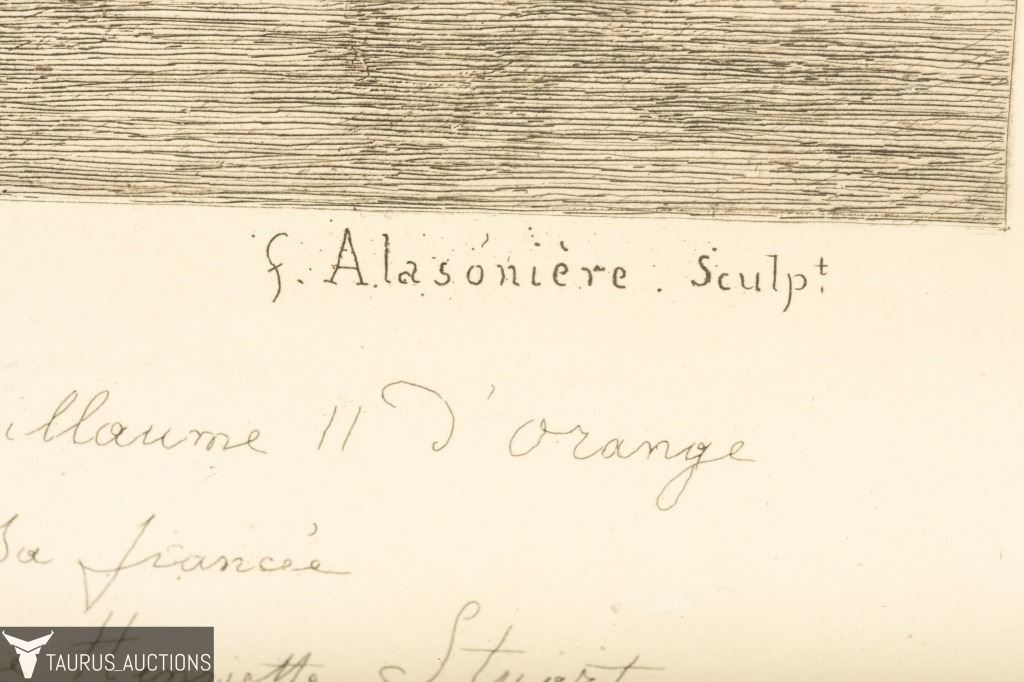 f. Alasonière. Sculpt.
illaume II D'Orange
Sa fiancée
Henriette Stuart
TAURUS_AUCTIONS